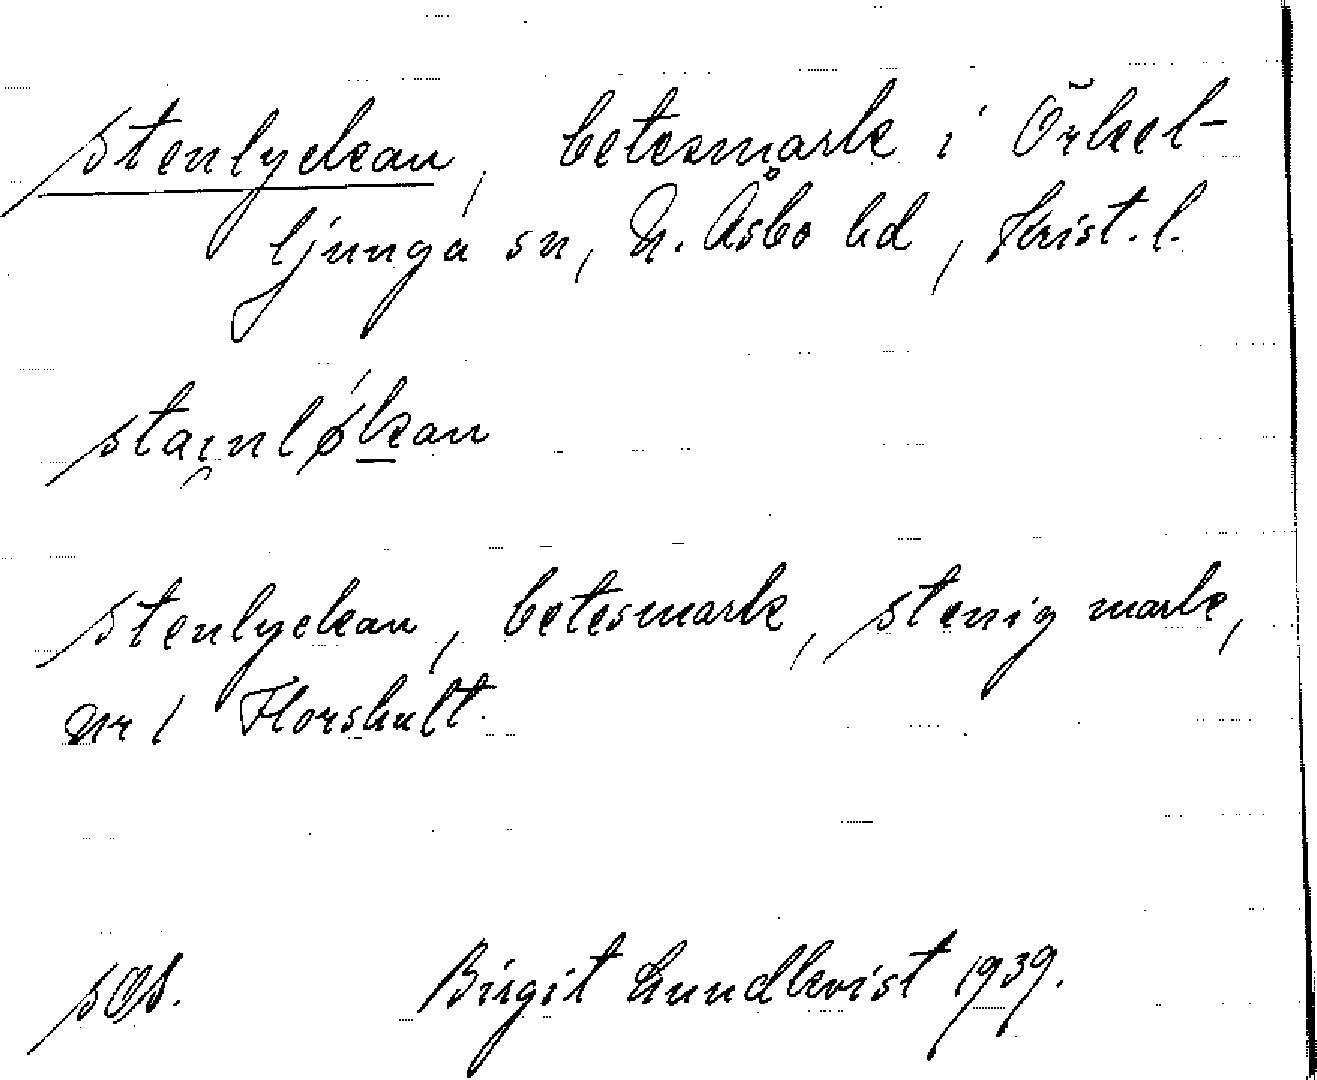 Stenlyckan, betesmark i Örkel-
ljunga sn, N. Åsbo hd, Krist. l.
stai̯nlǿkan
Stenlyckan, betesmark, stenig mark,
nr 1 Horshult.
Birgit Lundkvist 1939.